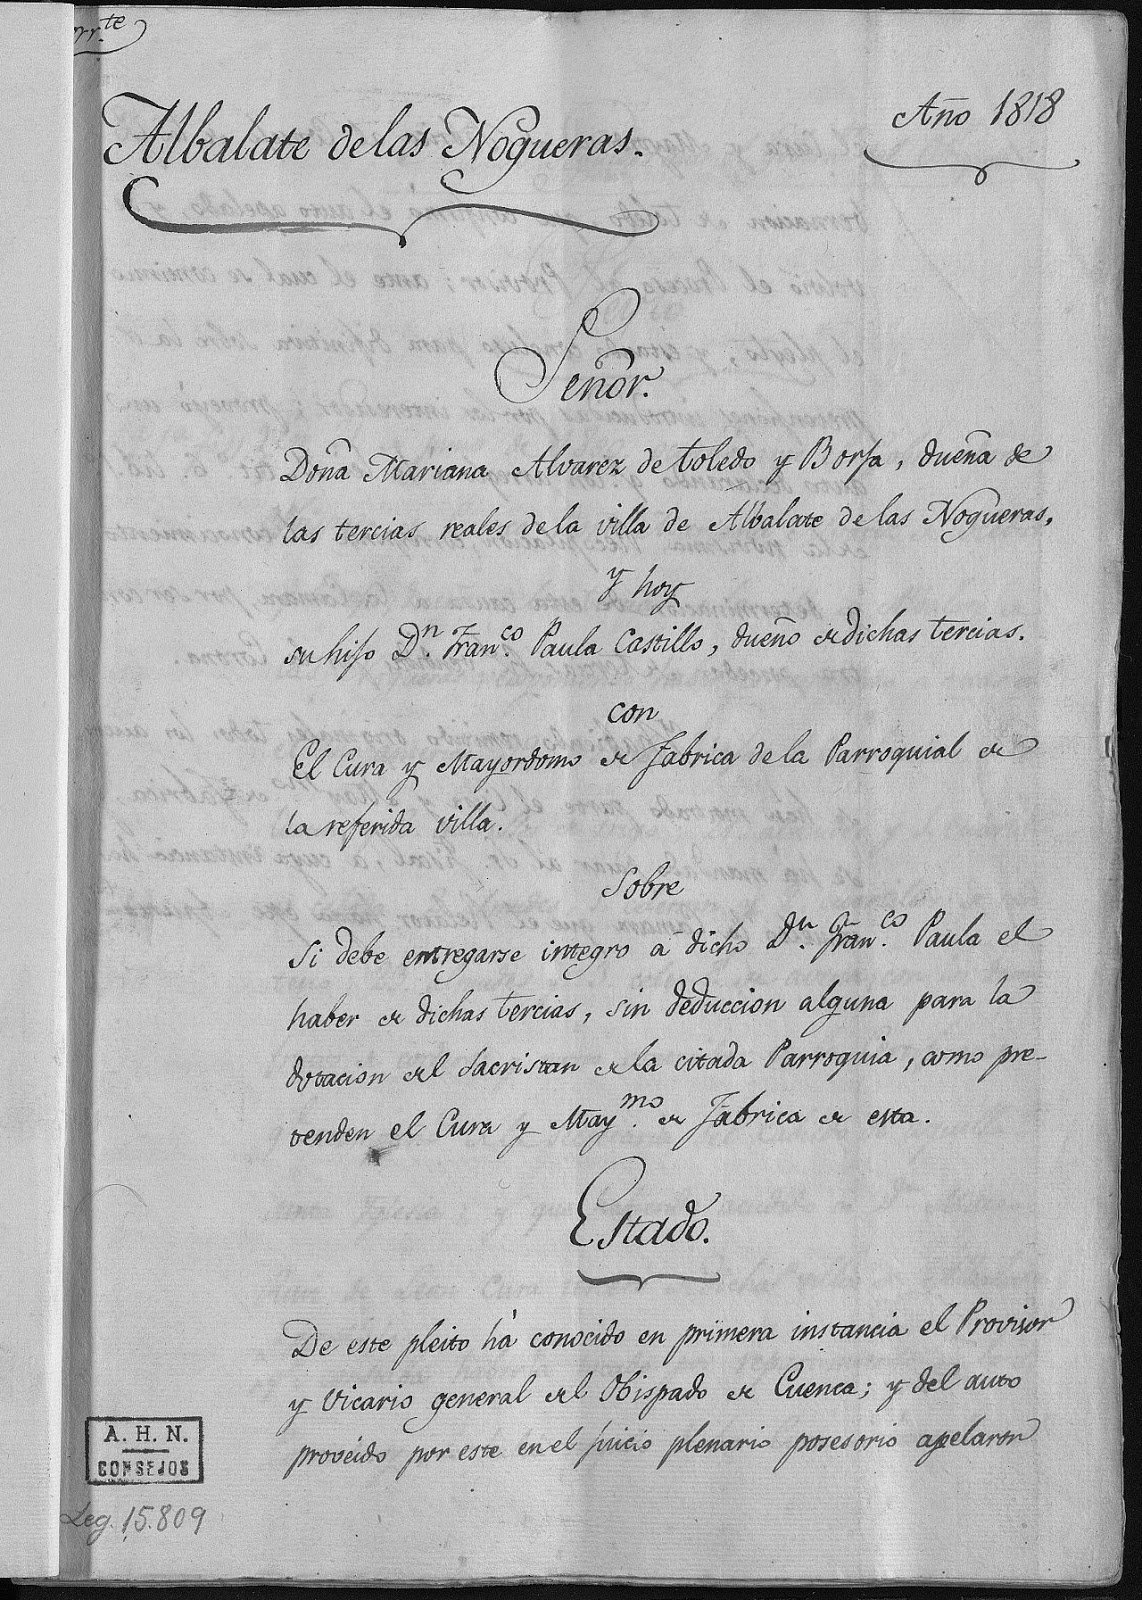 rr.te
Albalate de las Nogueras.
Año 1818
Señor.
Doña Mariana Alvarez de Toledo y Borja, dueña de
las tercias reales de la villa de Albalate de las Nogueras,
y hoy
su hijo D.n Fran.co Paula Castillo, dueño de dichas tercias.
con
El Cura y Mayordomo de Fabrica de la Parroquial de
la referida villa.
Sobre
Si debe entregarse integro á dicho D.n Fran.co Paula el
haber de dichas tercias, sin deduccion alguna para la
dotacion del Sacristan de la citada Parroquia, como pre-
tenden el Cura y May.mo de Fabrica de esta.
Estado.
De este pleito há conocido en primera instancia el Provisor
y Vicario general del Obispado de Cuenca; y del auto
proveido por este en el juicio plenario posesorio apelaron
A. H. N.
CONSEJOS
Leg. 15.809